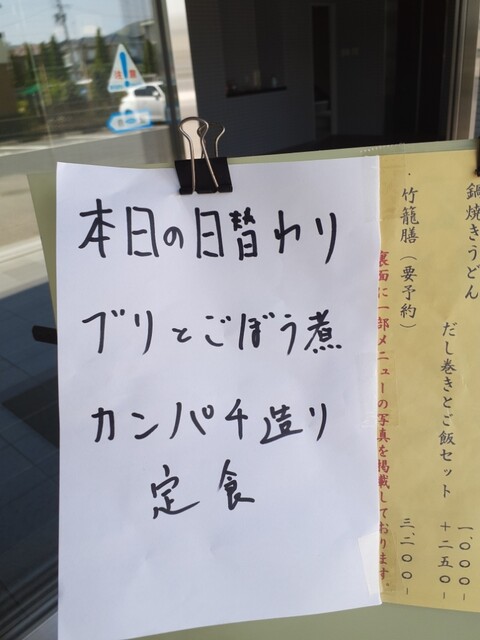 本日の日替わり
ブリとごぼう煮
カンパチ造り
定食
鍋焼きうどん 一、〇〇〇ー
だし巻きとご飯セット ＋二五〇ー
竹籠膳（要予約） 三、二〇〇ー
裏面に一部メニューの写真を掲載しております。
注意